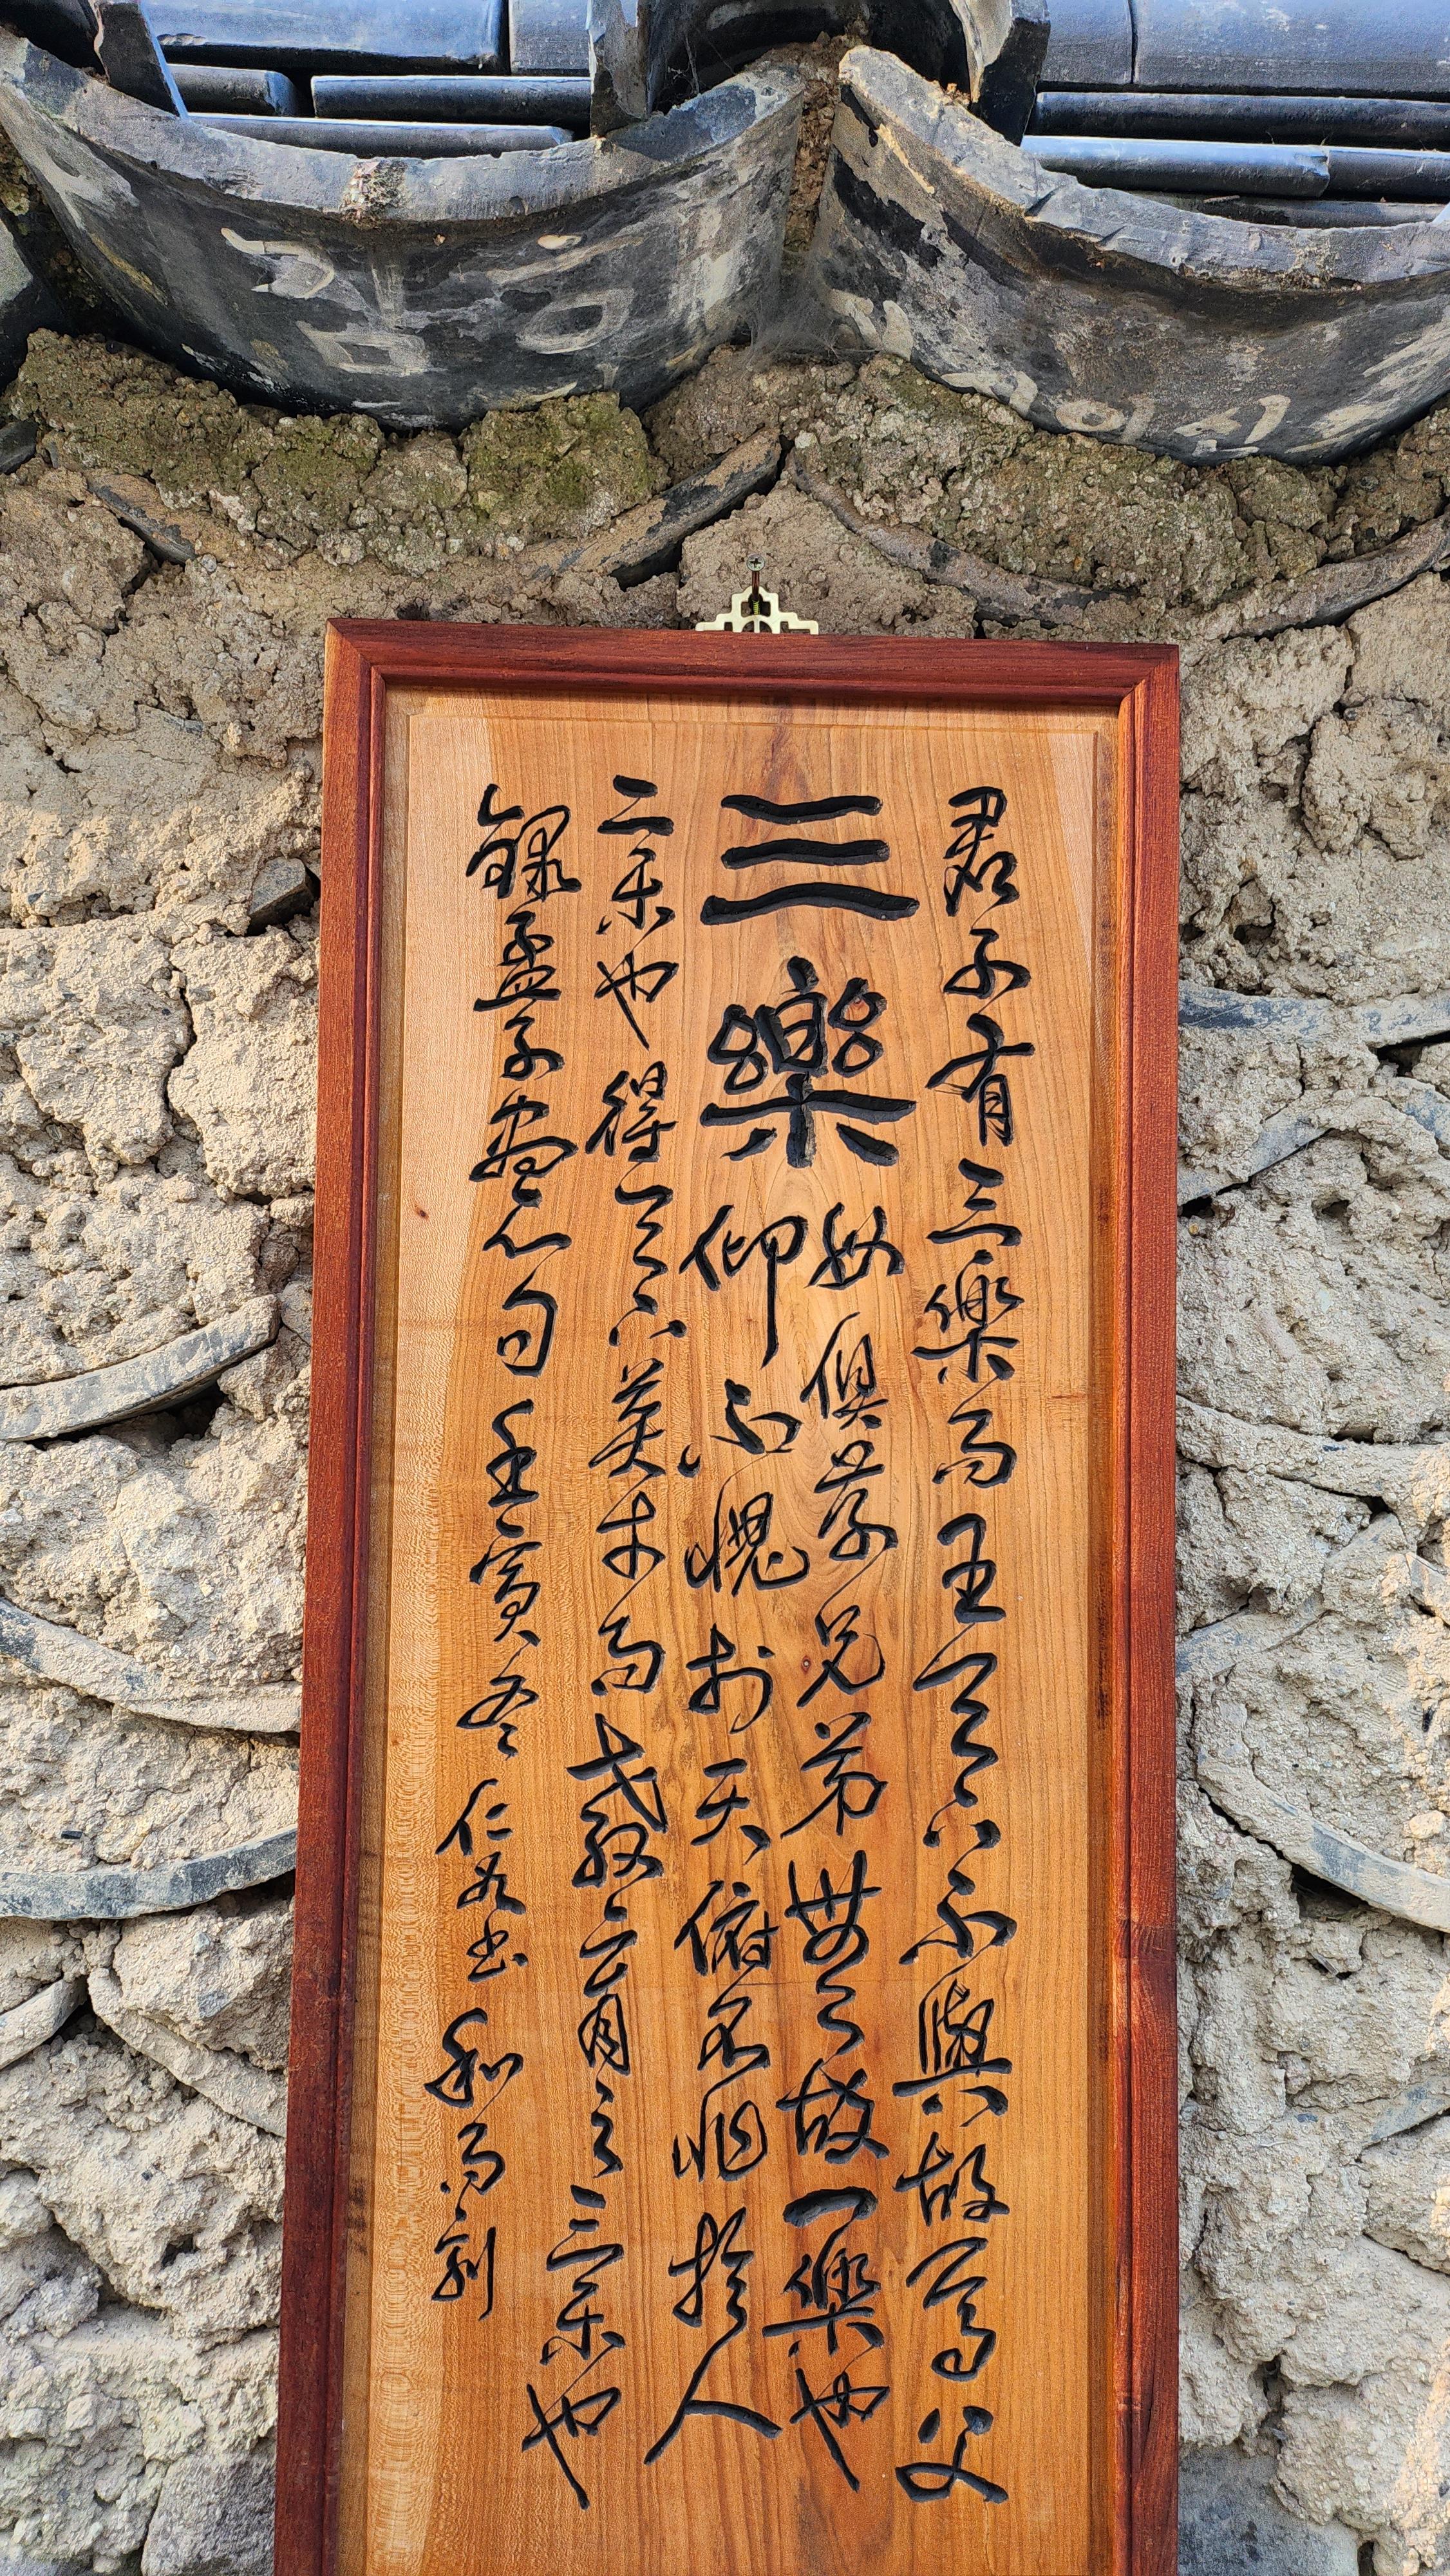 君子有三樂而王天下不與故焉父
三樂
母俱存兄弟無故一樂也
仰不愧於天俯不怍於人
二樂也得天下英才而敎育之三樂也
錄孟子盡心句 壬寅冬 仁書 和刻